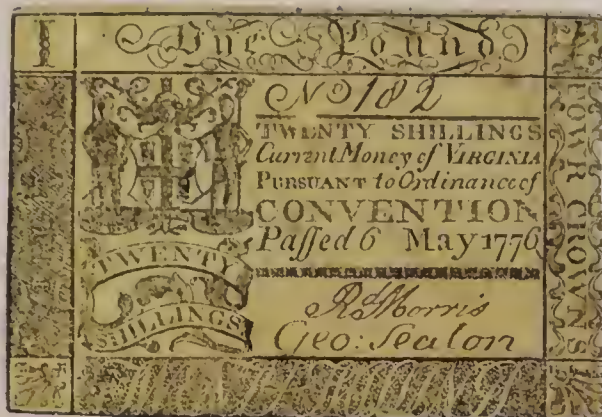 I One Pound
No 182
TWENTY SHILLINGS
Current Money of VIRGINIA
PURSUANT to Ordinance of
CONVENTION
Paſſed 6 May 1776
TWENTY
SHILLINGS
Geo: Seaton
CROWNS